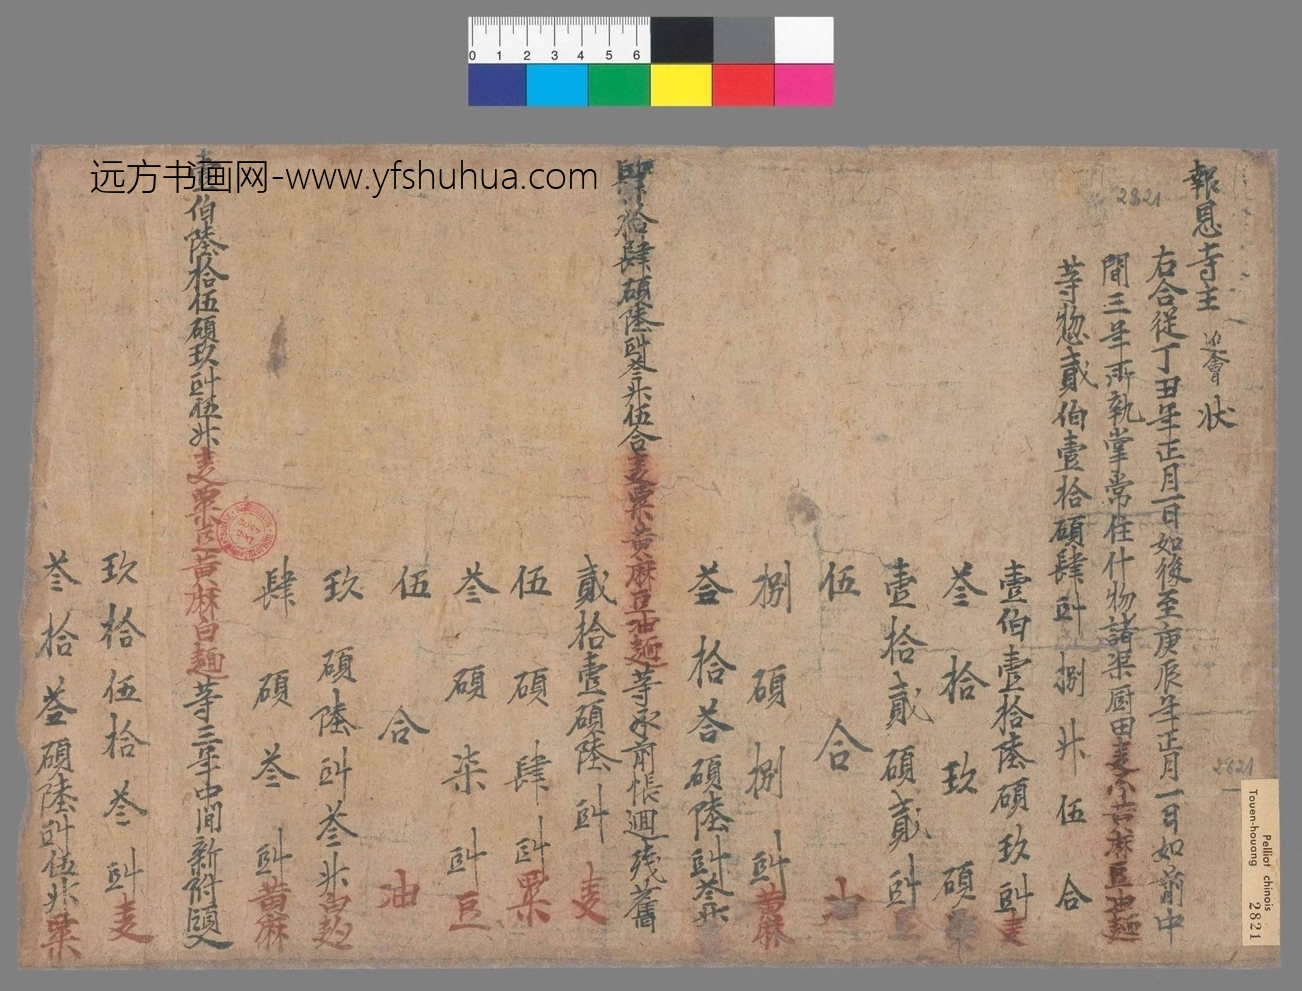 報恩寺主 延會 狀
右合從丁丑年正月一日如後至庚辰年正月一日如前中
間三年所執掌常住什物諸渠厨田麦粟黄麻豆油麺
等惣貳伯壹拾碩肆㪷捌升伍合
壹伯壹拾陸碩玖㪷麦
叁拾玖碩粟
壹拾貳碩貳㪷豆
伍合油
捌碩捌㪷黄麻
叁拾叁碩陸㪷叁升
肆拾肆碩陸㪷叁升伍合麦粟黄麻豆油麺等承前帳迴殘舊
貳拾壹碩陸㪷麦
伍碩肆㪷粟
叁碩柒㪷豆
伍合油
玖碩陸㪷叁升白麺
肆碩叁㪷黄麻
壹伯陸拾伍碩玖㪷伍升麦粟豆黄麻白麺等三年中間新附領入
玖拾伍拾叁㪷麦
叁拾叁碩陸㪷伍升粟
远方书画网-www.yfshuhua.com
0 1 2 3 4 5 6
2821
2821
Pelliot chinois
Touen-houang 2821